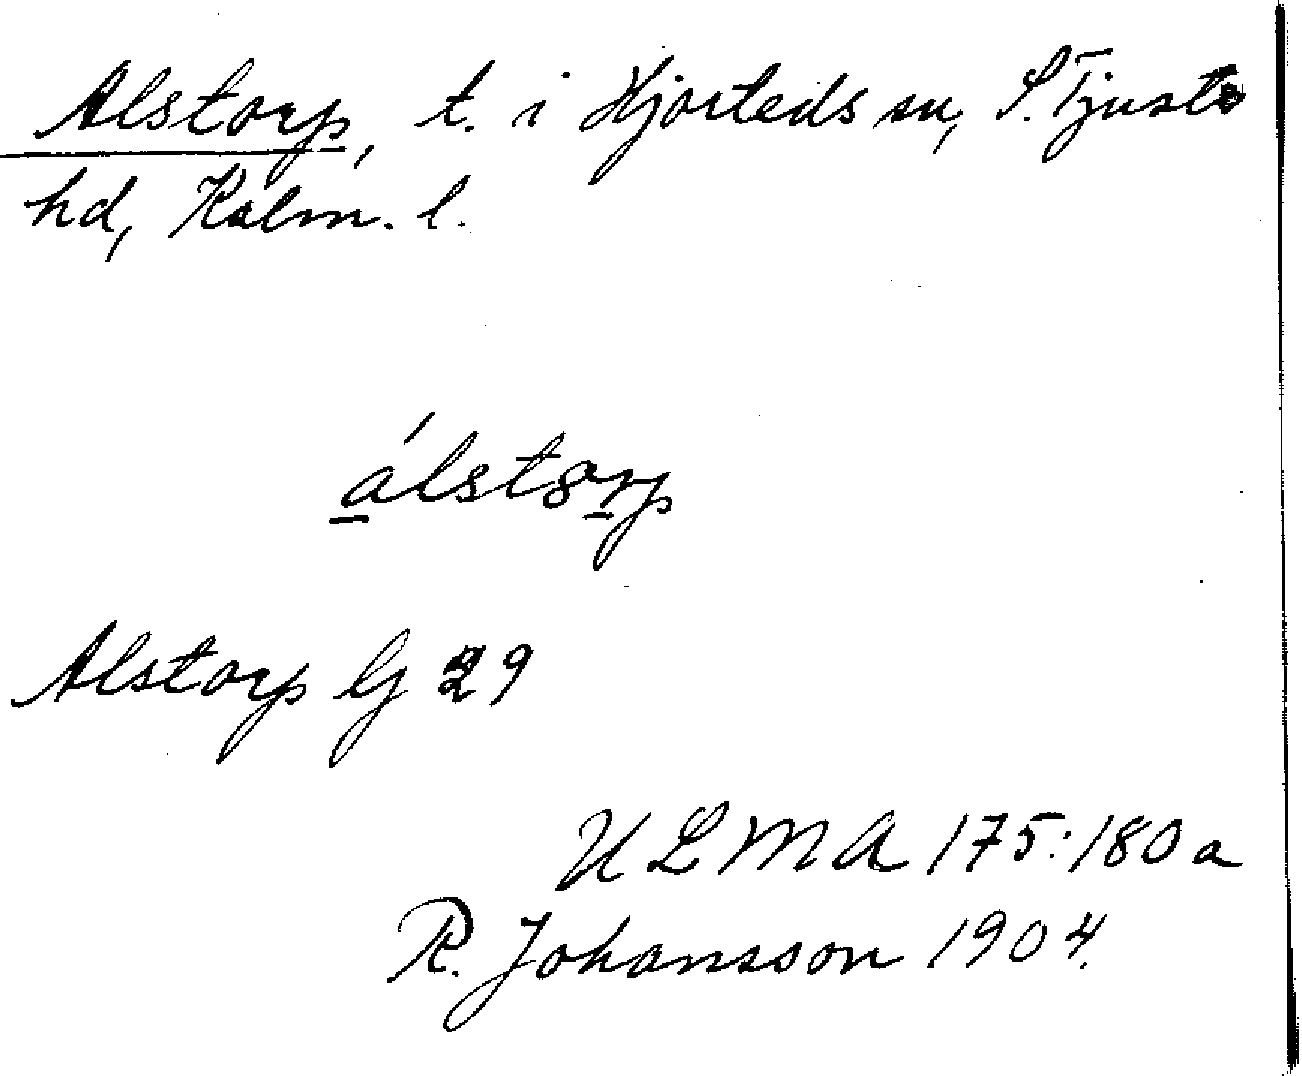 Alstorp, t. i Hjorteds sn, S. Tjusts
hd, Kalm. l.
álstorp
Alstorp G 29
ULMA 175:180a
R. Johansson 1904.